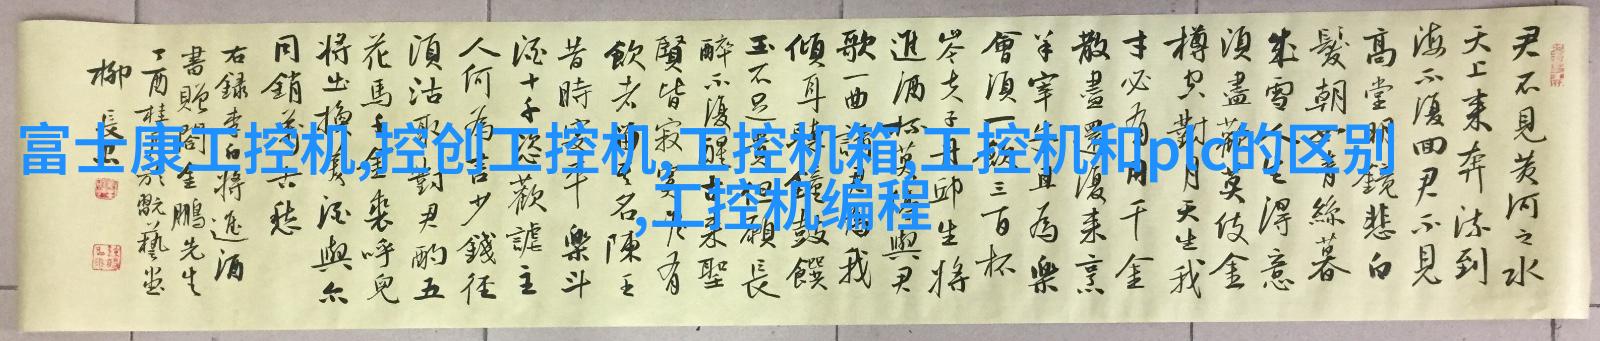 君不見黃河之水
天上来奔流到
海不復回君不見
高堂明鏡悲白
髮朝如青絲暮
成雪人生得意
須盡歡莫使金
樽空對月天生我
才必有用千金
散盡還復来烹
羊宰牛且為樂
會須一飲三百杯
岑夫子丹邱生將
進酒杯莫停與君
歌一曲請君為我
傾耳聽鐘鼓饌
玉不足貴但願長
醉不復醒古来聖
賢皆寂寞惟有
飲者留其名陳王
昔時宴平樂斗
酒十千恣歡謔主
人何為言少錢徑
須沽取對君酌五
花馬千金裘呼兒
將出換美酒與尔
同銷萬古愁
右録李白將進酒
書贈閻金鵬先生
丁酉桂月於翫藝堂
柳長忠
富士康工控机,控创工控机,工控机箱,工控机和plc的区别
,工控机编程